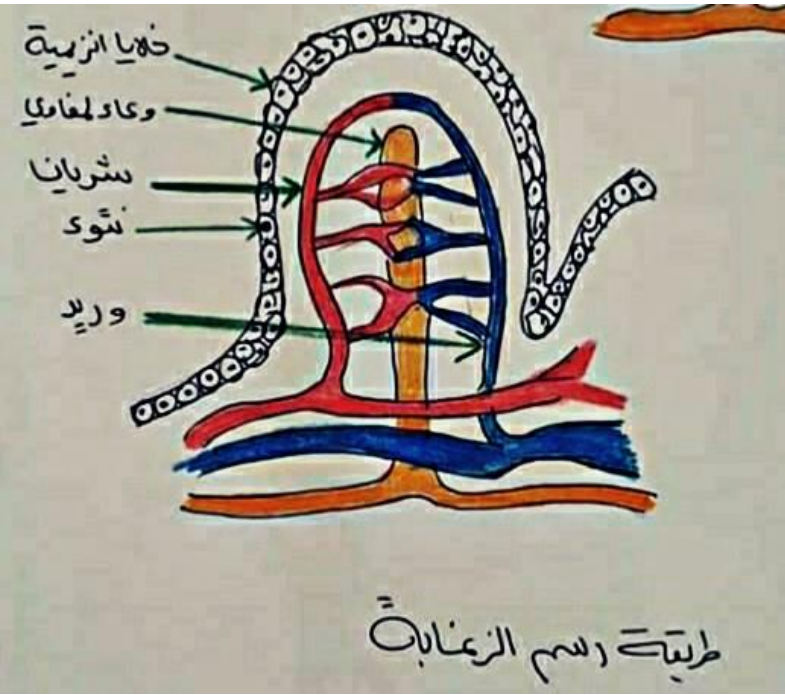 خلايا انزيمية
وعاء لمفاوي
شريان
نتوء
وريد
طريقة رسم الزغابة